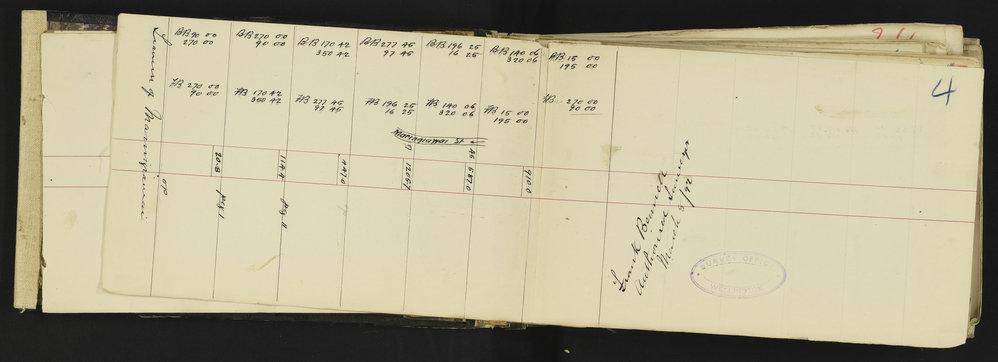 4
BB 90 00
270 00
BB 270 00
90 00
BB 170 42
350 42
BB 277 45
97 45
BB 196 25
16 25
BB 140 06
320 06
BB 15 00
195 00
FB 270 00
90 00
FB 170 42
350 42
FB 277 45
97 45
FB 196 25
16 25
FB 140 06
320 06
FB 15 00
195 00
FB 270 00
90 00
St
20.8
114.4
447.0
1205.7
587.0
910.0
pg 1
pg 11
Frank Bennett
Authorised Surveyor
March 5/92
SURVEY OFFICE
WELLINGTON